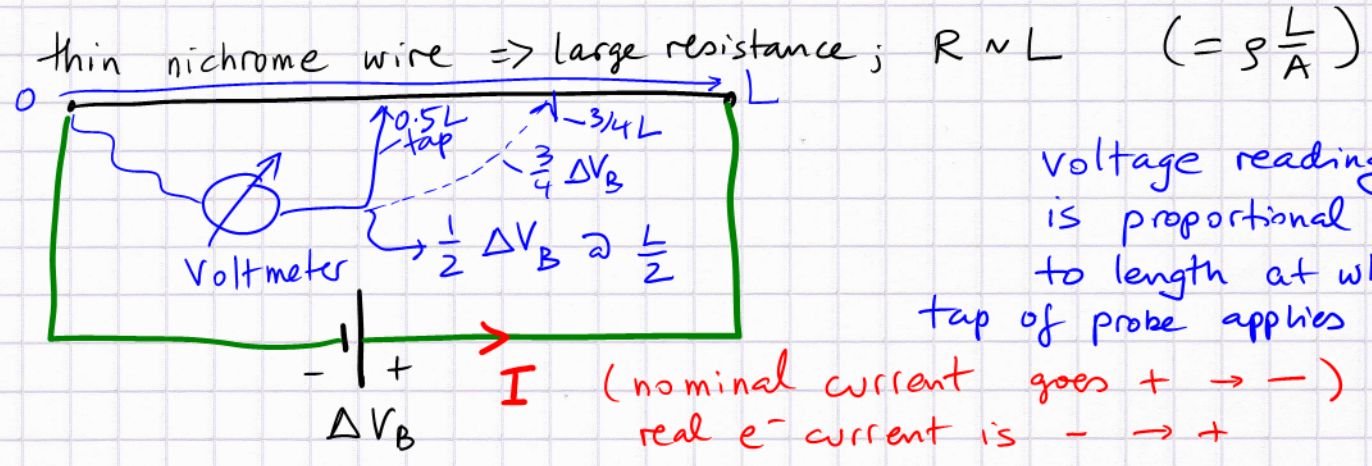 thin nichrome wire => large resistance; R ~ L (= ρ L/A)
0 L
0.5L
tap
3/4 L
3/4 ΔV_B
voltage reading
is proportional
to length at wh
tap of probe applies
Voltmeter
1/2 ΔV_B @ L/2
- +
I (nominal current goes + → -)
real e⁻ current is - → +
ΔV_B